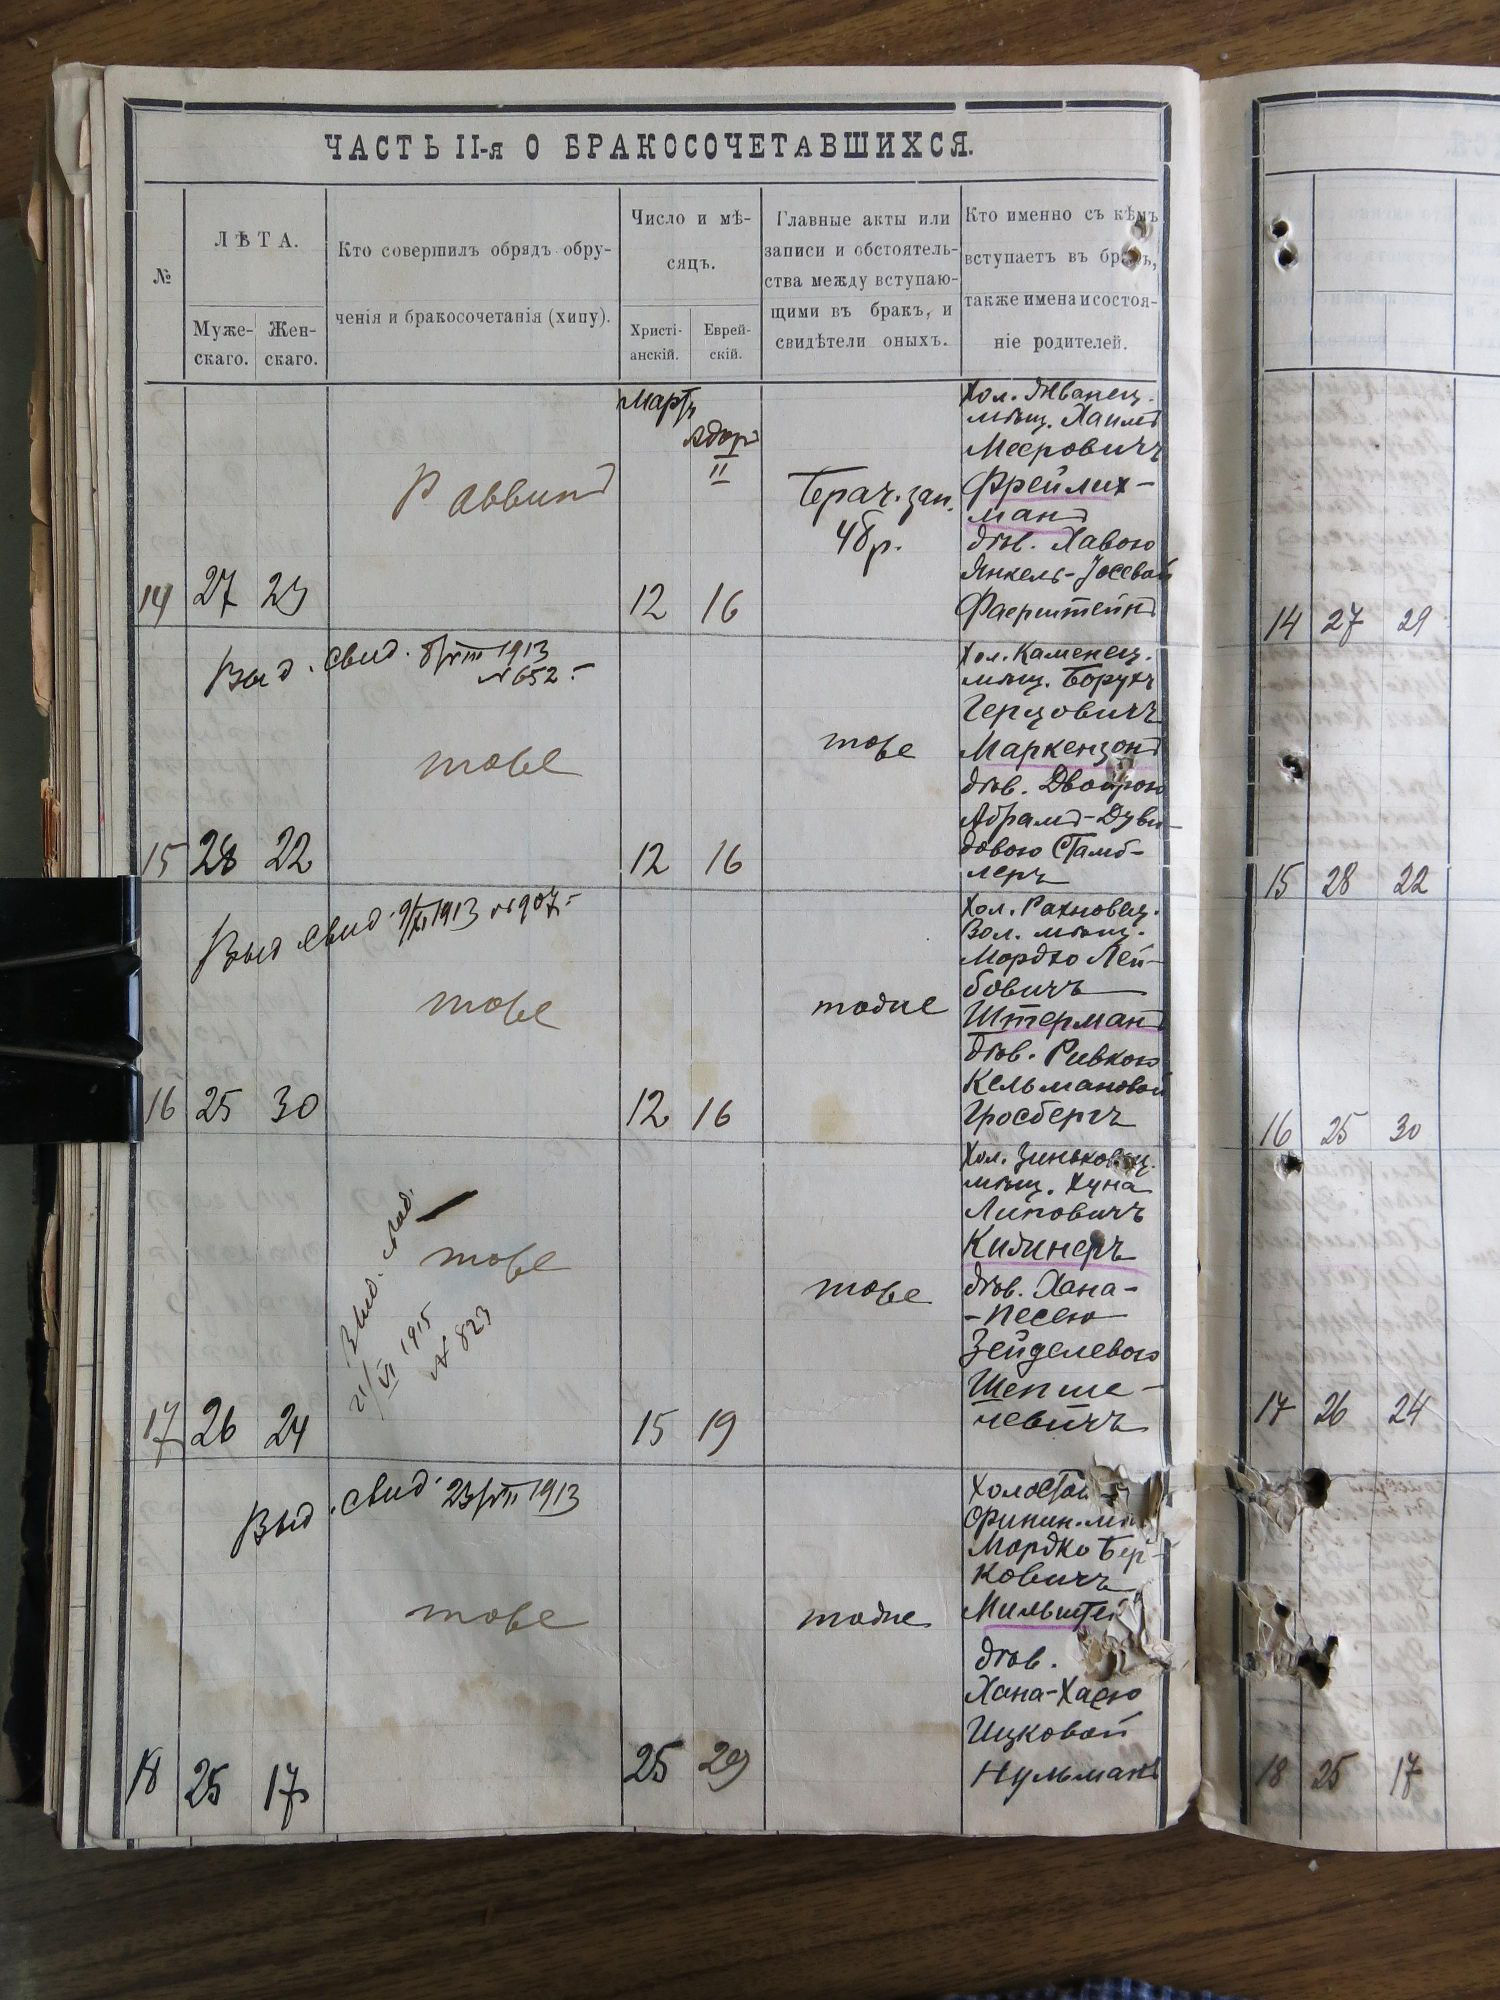 ЧАСТЬ II-я О БРАКОСОЧЕТАВШИХСЯ.
№
ЛѢТА.
Муже-
скаго.
Жен-
скаго.
Кто совершилъ обрядъ обру-
ченія и бракосочетанія (хипу).
Число и мѣ-
сяцъ.
Христі-
анскій.
Еврей-
скій.
Главные акты или
записи и обстоятель-
ства между вступаю-
щими въ бракъ, и
свидѣтели оныхъ.
Кто именно съ кѣмъ
вступаетъ въ бракъ,
также имена и состоя-
ніе родителей.
Мартъ
Адоръ
II
Раввинъ
Брач. зап.
Хол. Жванец.
мѣщ. Хаимъ
Мееровичъ
Фрейлих-
манъ
дѣв. Хавою
Янкель-Іосевой
Фаерштейнъ
14 27 12 16
Выд. свид. 8/VIII 1913
№ 652.-
тоже
тоже
Хол. Каменец.
мѣщ. Борухъ
Герцовичъ
Маркензонъ
дѣв. Двойрою
Абрамъ-Дуви-
довою Стамб-
леръ
15 28 22 12 16
Выд свид. 9/XI 1913 № 907.-
тоже
тоже
Хол. Рахновец.
Вол. мѣщ.
Мордко Лей-
бовичъ
Штерманъ
дѣв. Ривкою
Кельмановой
Гросбергъ
16 25 30 12 16
Выд. свид.
21/VI 1915
№ 823
тоже
тоже
Хол. Зиньковец.
мѣщ. Хуна
Липовичъ
Кижнеръ
дѣв. Хана-
-Песею
Зейделевою
Шепше-
левичъ
17 26 24 15 19
Выд. свид. 23/VII 1913
тоже
тоже
Холостой
Фринин.
Мордко Бер-
ковичъ
Мильштей
дѣв.
Хана-Хаею
Ицковой
Нульманъ
18 25 17 25 29
14 27 29
15 28 22
16 25 30
17 26 24
18 25 17